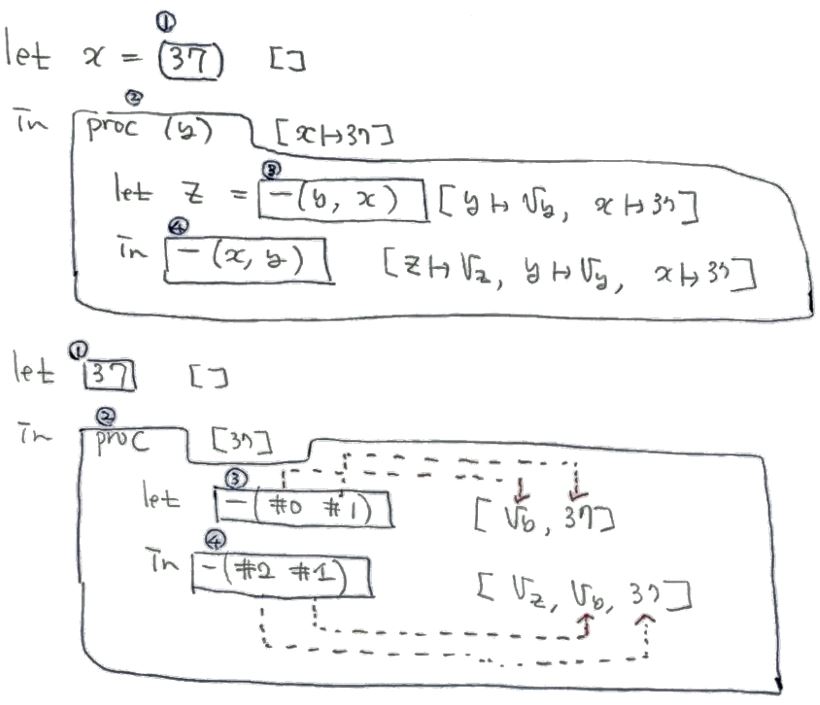 ①
let x = (37) []
②
in proc (y) [x↦37]
③
let z = -(y, x) [y↦Vy, x↦37]
④
in -(x, y) [z↦Vz, y↦Vy, x↦37]
①
let 37 []
②
in proc [37]
③
let -(#0 #1) [Vy, 37]
④
in -(#2 #1) [Vz, Vy, 37]